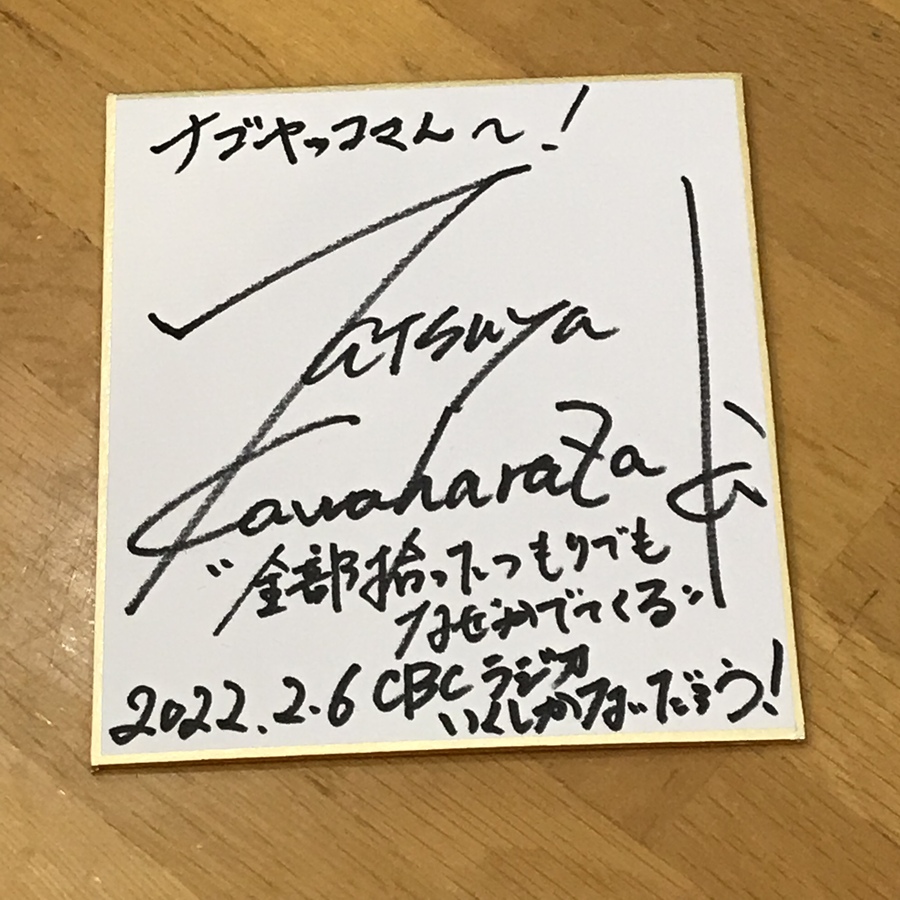 ナゴヤッコさん〜!
Tatsuya
Kawaharazaki
"全部拾ったつもりでも
なぜかでてくる"
2022.2.6 CBCラジオ
いくしかないだろう!